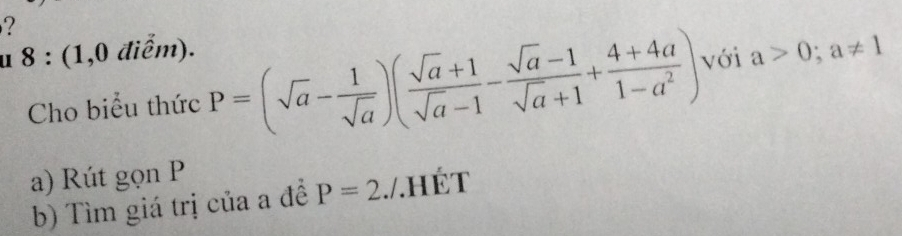 ?
u 8 : (1,0 điểm).
Cho biểu thức P = (√a − 1/√a)((√a + 1)/(√a − 1) − (√a − 1)/(√a + 1) + (4 + 4a)/(1 − a²)) với a > 0; a ≠ 1
a) Rút gọn P
b) Tìm giá trị của a để P = 2./.HẾT